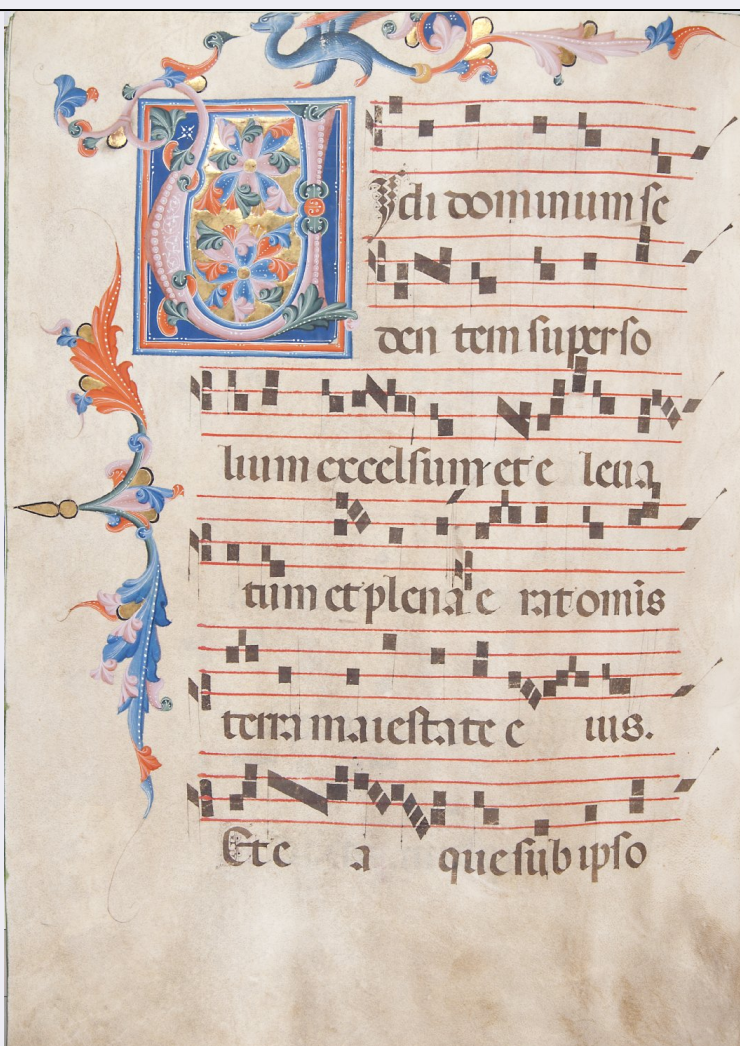 Vidi dominum se
den tem super so
lium excelsum et e leua
tum et plena e rat omis
terra maiestate e ius.
Et e a que sub ipso